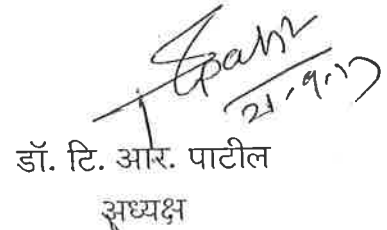 21.9.17
डॉ. टि. आर. पाटील
अध्यक्ष